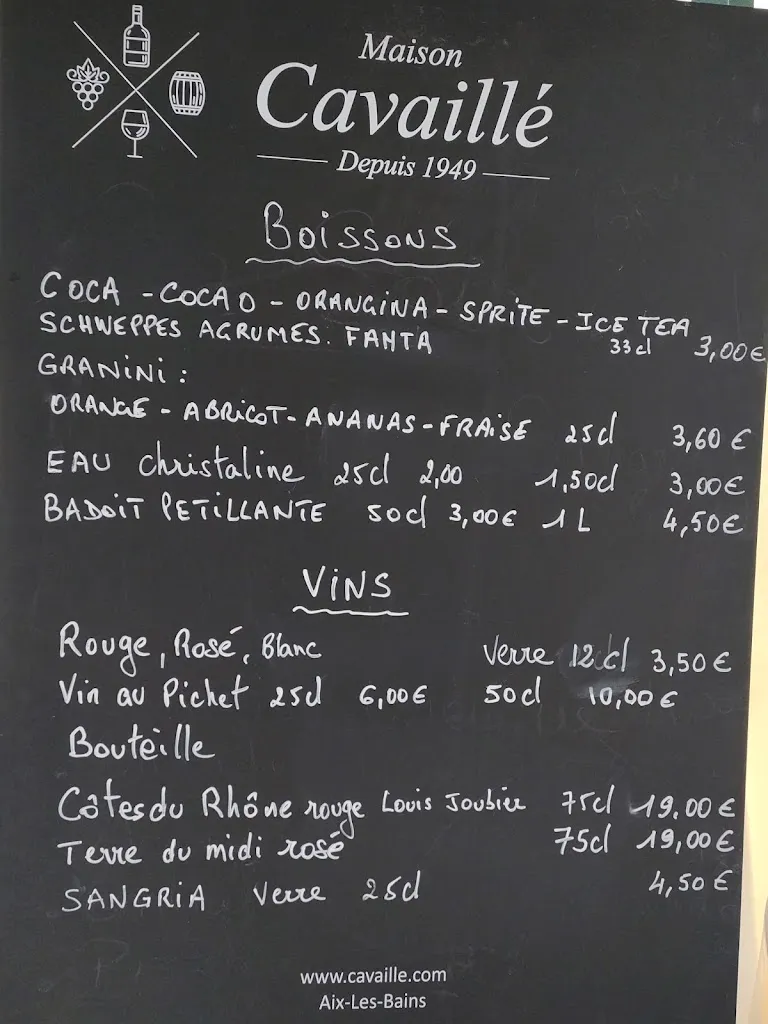 Maison
Cavaillé
Depuis 1949
BOISSONS
COCA - COCA O - ORANGINA - SPRITE - ICE TEA
SCHWEPPES AGRUMES. FANTA 33cl 3,00€
GRANINI :
ORANGE - ABRICOT - ANANAS - FRAISE 25cl 3,60 €
EAU Christaline 25cl 2,00 1,50cl 3,00€
BADOIT PETILLANTE 50cl 3,00€ 1L 4,50€
VINS
Rouge, Rosé, Blanc Verre 12cl 3,50€
Vin au Pichet 25cl 6,00€ 50cl 10,00€
Bouteille
Côtes du Rhône rouge Louis Joubier 75cl 19.00€
Terre du midi rosé 75cl 19,00€
SANGRIA Verre 25cl 4,50€
www.cavaille.com
Aix-Les-Bains